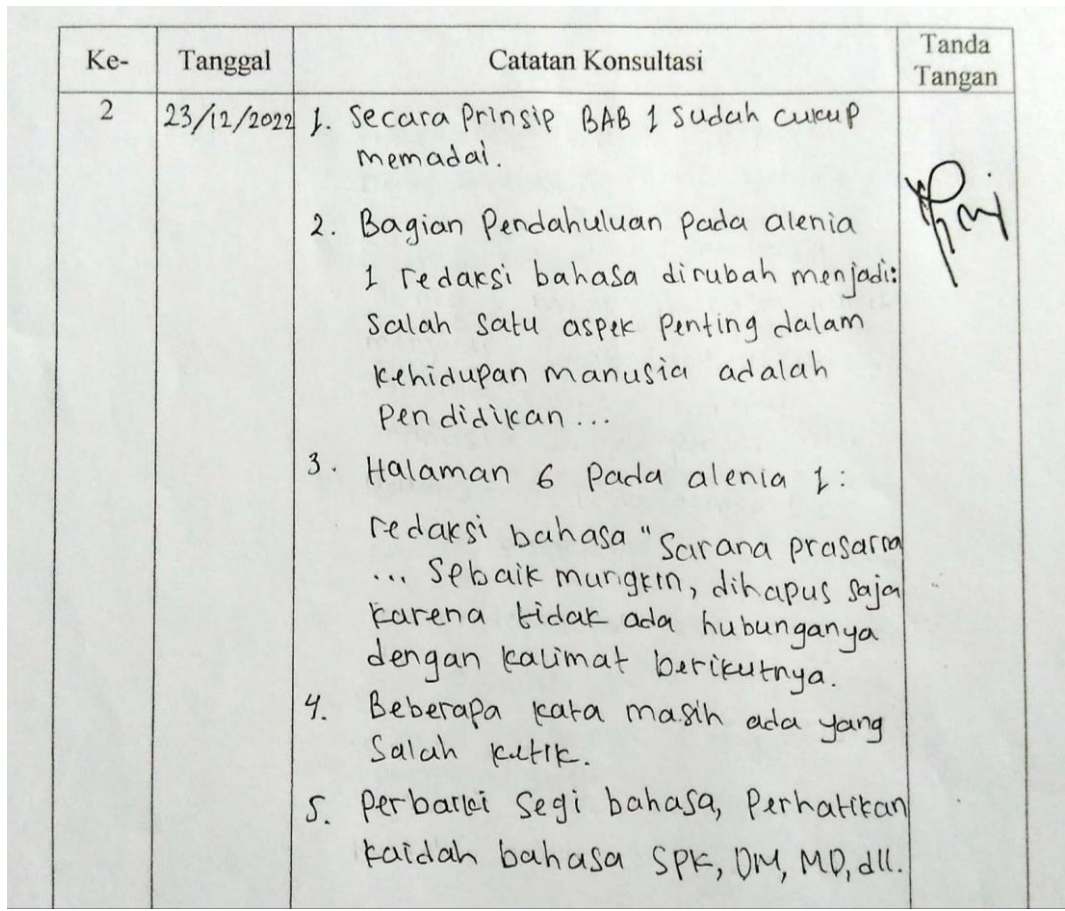 Ke- Tanggal Catatan Konsultasi Tanda
Tangan
2 23/12/2022 1. Secara Prinsip BAB 1 sudah cukup
memadai.
2. Bagian Pendahuluan pada alenia
1 redaksi bahasa dirubah menjadi:
Salah satu aspek Penting dalam
kehidupan manusia adalah
Pendidikan ...
3. Halaman 6 Pada alenia 1:
redaksi bahasa "Sarana prasarna
... Sebaik mungkin, dihapus saja
karena tidak ada hubunganya
dengan kalimat berikutnya.
4. Beberapa kata masih ada yang
Salah ketik.
5. Perbaiki Segi bahasa, Perhatikan
kaidah bahasa SPK, DM, MD, dll.